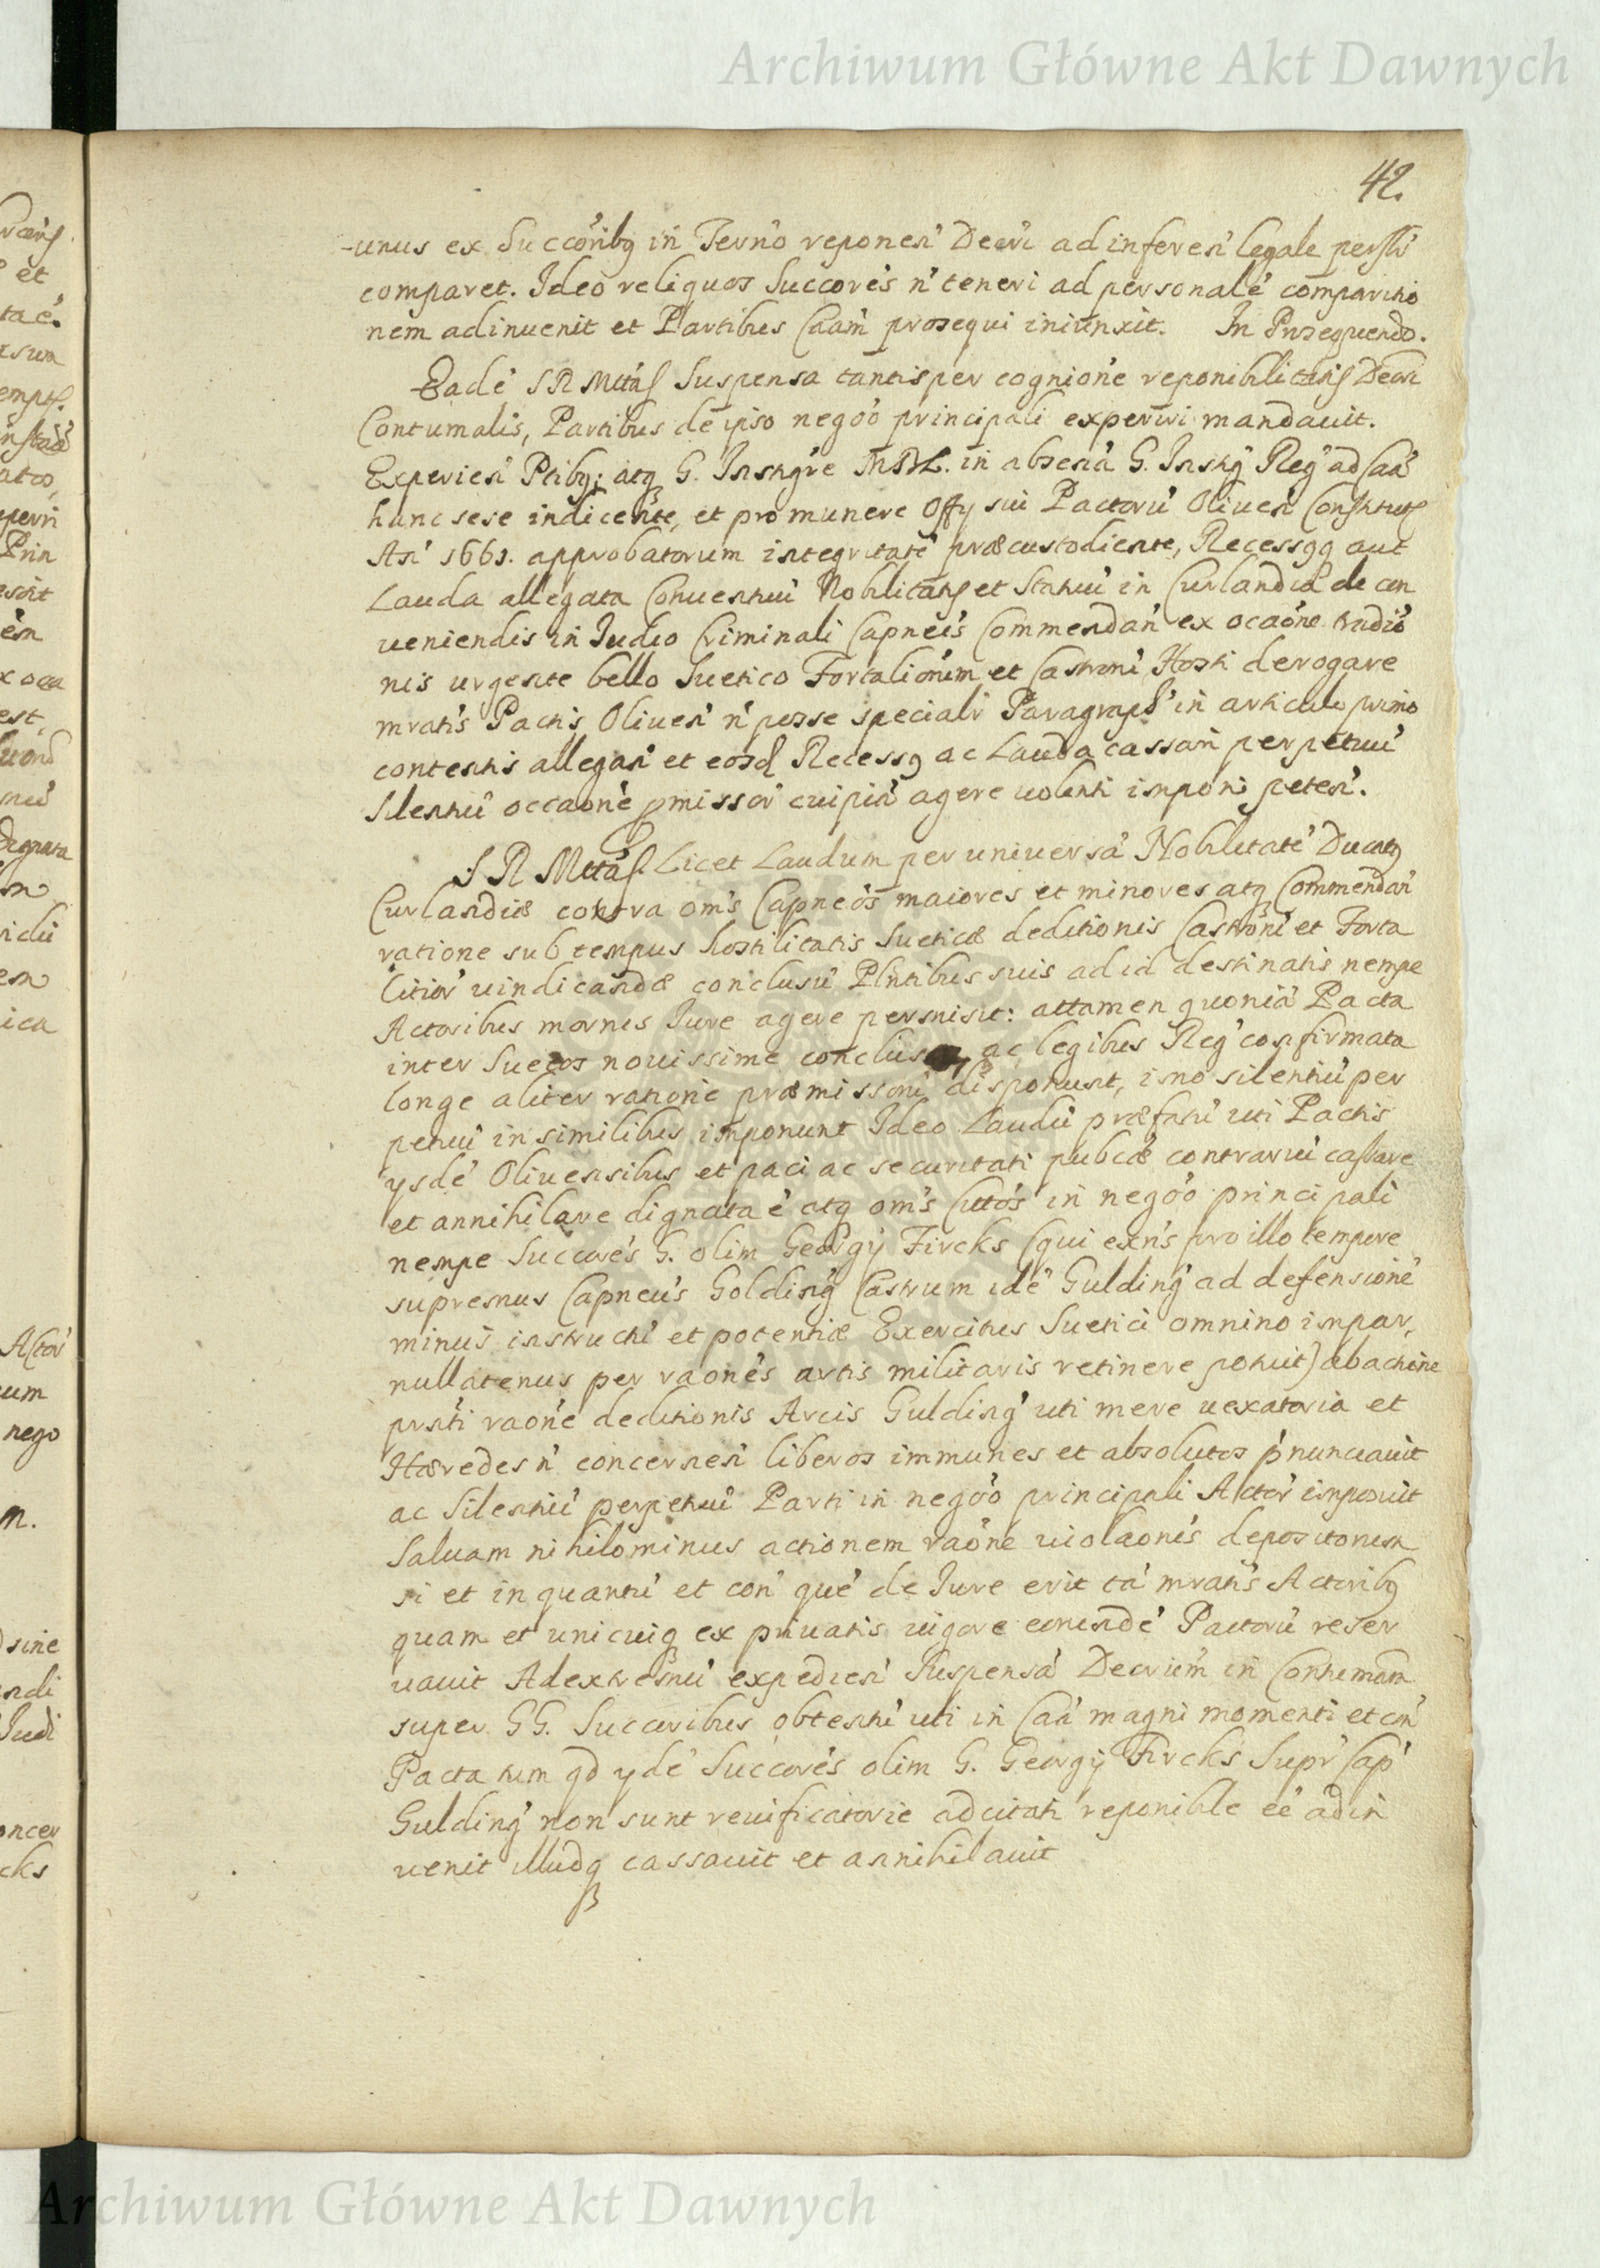 Archiwum Główne Akt Dawnych
42.
-unus ex Succoribq in Terno reponen Decri ad inferen legale perstis
comparet. Ideo reliquos Succores n teneri ad personale comparitio
nem adinuenit et Partibus Caam prosequi iniunxit. In Prosequendo.
Eade S R Mttas Suspensa tantisper cognione reponibilitatis Decri
Contumalis, Partibus de ipso negoo principali experiri mandauit.
Experien Ptibq; atq G. Instigre MDL. in absena G. Instig Reg ad Caa
hanc sese indicente, et pro munere Offy sui Pactoru Oliuen Constitut
An 1661. approbatorum integritate præcustodiente, Recessqq aut
Lauda allegata Conuentuu Nobilitatis et Statuu in Curlandia de con
ueniendis in Iudio Criminali Capneis Commendan ex ocaone tradio
nis urgente bello Suetico Fortalionim et Castroru Hosti derogare
mratis Pactis Oliuen n posse speciali Paragrapho in articulo primo
contentis allegan et eosd Recessq ac Lauda cassari perpetuu
Silentiu occaone pmissor cuipia agere uolenti imponi peten.
S R Mttas Licet Laudum per uniuersa Nobilitate Ducatq
Curlandiæ contra oms Capneos maiores et minores atq Commendan
ratione sub tempus hostilitatis Sueticæ deditionis Castroru et Forta
litior uindicandæ conclusu Plntibus suis ad id destinatis nempe
Actoribus mornis Iure agere permisit: attamen quonia Pacta
inter Suecos nouissime conclusa ac legibus Reg confirmata
longe aliter ratione præmissoru disponunt, imo silentiu per
petuu in similibus imponunt Ideo Laudu præfatu uti Pactis
ysde Oliuensibus et paci ac securitati pubcæ contrariu cassare
et annihilare dignata e atq oms Cittos in negoo principali
nempe Succores G. olim Georgy Fircks (qui exns pro illo tempore
supremus Capneus Golding Castrum ide Gulding ad defensione
minus instructu et potentiæ Exercitus Suetici omnino impar,
nullatenus per raones artis militaris retinere potuit) ab actione
prnti raone deditionis Arcis Gulding uti mere uexatoria et
Hæredes n concernen liberos immunes et absolutos pnunciauit
ac Silentiu perpetuu Parti in negoo principali Actor imposuit
Saluam nihilominus actionem raone uiolaonis depositorum
si et in quantu et con que de Iure erit ta mratis Actoribq
quam et unicuiq ex priuatis uigore eorunde Pactoru reser
uauit Adextremu expedien Suspensa Decrium in Contumam
super GG. Succoribus obtentu uti in Caa magni momenti et con
Pacta tum qd yde Succores olim G. Georgy Fircks Supr Cap
Gulding non sunt reuificatorie adcitati reponible ee adin
uenit illudq cassauit et annihilauit
Archiwum Główne Akt Dawnych